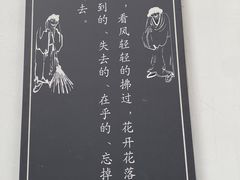 ，看风轻轻的拂过，花开花落
到的、失去的、在乎的、忘掉
去。